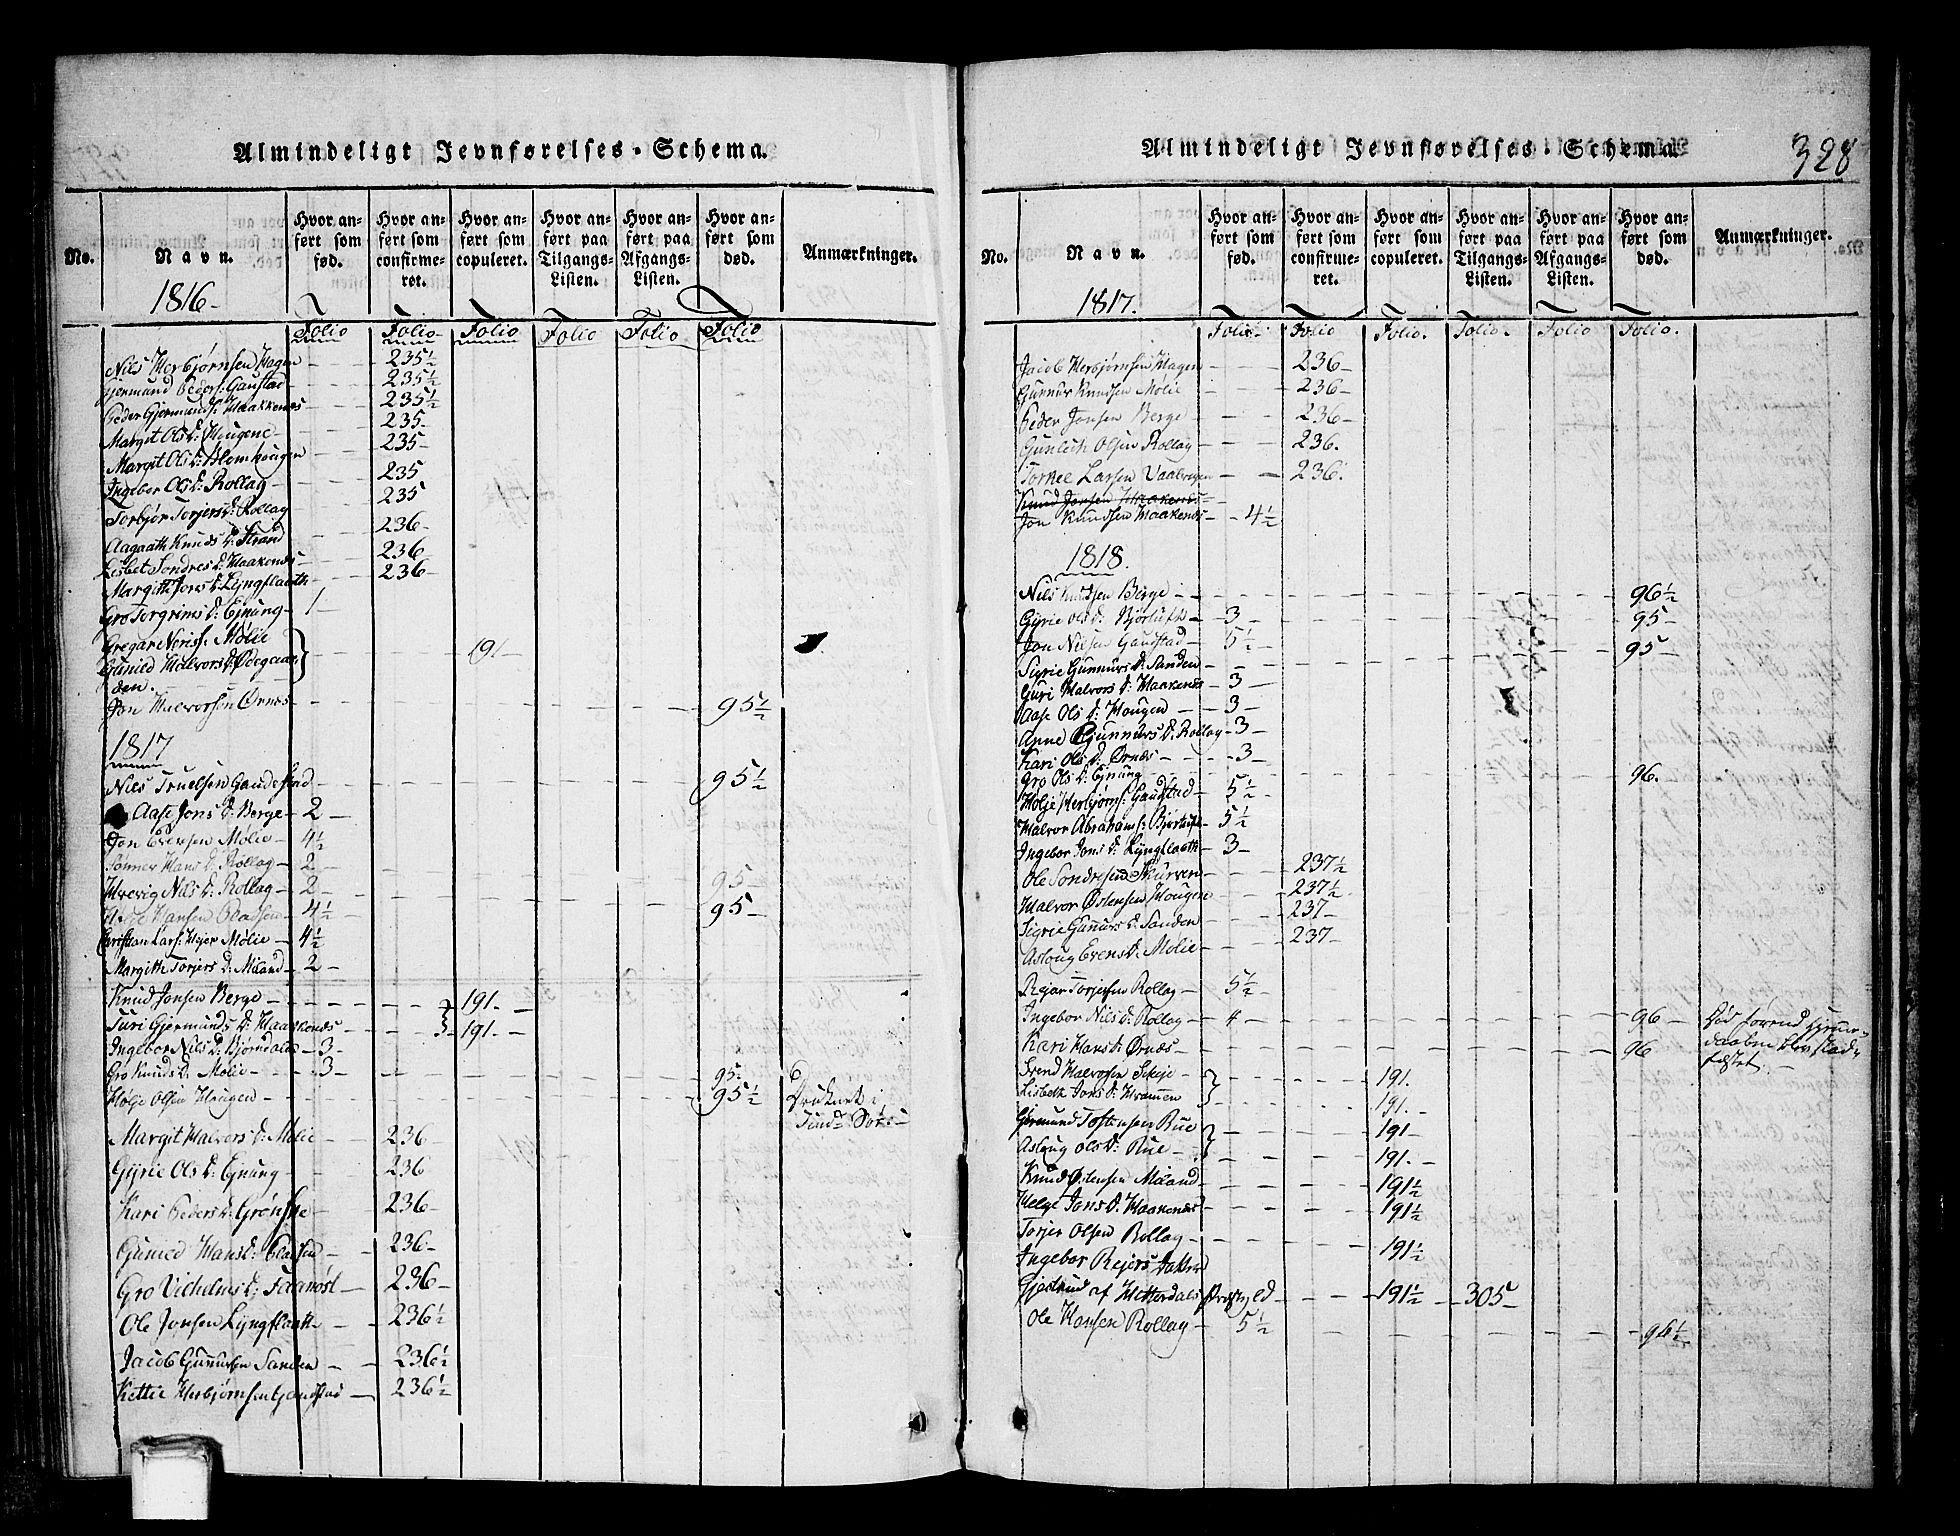 Almindeligt Jevnførelses-Schema.
No.
Navn.
Hvor anført som fød.
Hvor anført som confirmeret.
Hvor anført som copuleret.
Hvor anført paa Tilgangs-Listen.
Hvor anført paa Afgangs-Listen.
Hvor anført som død.
Anmærkninger.
1816-
Folio Folio Folio Folio Folio Folio
Nils Herbjørnsen Hagen 235½
Gjermund Peders: Gaustad 235½
Peder Gjermunds: Haakkenæs 235½
Margit Ols D: Hougene 235-
Margit Ols D: 235-
Ingebor Ols D: Rollag 235
Torbjør Torjers D: Rollag 235
Aagaath Knuds D: Strand 236-
Lisbet Sondres D: Haakenæs 236
Margith Jons D: Lyngflaath 236-
Gro Torgrims D: Ejnung 1-
Gregar Neriss: Mølie
Gunild Halvors D: Ødegaar- 191-
den.
Jon Halvorsen Ørnæs 95½
1817
Nils Truelsen 95½
Aase Jons D: Berge 2-
Jon Evensen Mølie 4½
Tønner Hans D: Rollag 2- 95
Hrevig Nils D: Rollag 2- 95-
Hansen Pladsen 4½
Christian Lars: Mejer Mølie 4½
Margith Torjers D: Miland 2-
Knud Jonsen Berge 191.
Turi Gjermunds D: Haakenæs 191-
Ingebor Nils D: Bjørndalen 3-
Gro Knuds D: Mølie 3 95-
Holje Olsen Hougen 95½ Druknet i
Margit Halvors D: Mølie 236-
Gyrie Ols D: Ejnung 236
Kari Peders D: 236-
Gunild Hans D: Pladsen 236-
Gro Vilhelms D: 236-
Ole Jonsen Lyngflaath 236½
Jacob Gunnursen Sanden 236½
Kettil Herbjørnsen Gaustad 236½
Almindeligt Jevnførelses-Schema.
328
No.
Navn.
Hvor anført som fød.
Hvor anført som confirmeret.
Hvor anført som copuleret.
Hvor anført paa Tilgangs-Listen.
Hvor anført paa Afgangs-Listen.
Hvor anført som død.
Anmærkninger.
1817.
Folio. Folio Folio. Folio. Folio Folio.
Jacob Herbjørnsen Hagen 236-
Gunnur Knudsen Mølie 236-
Peder Jonsen Berge 236-
Gunlech Olsen Rollag 236.
Torkel Larsen 236.
Knud Jonsen Haakenæs
Jon Knudsen Haakenæs 4½
1818.
Nils Knudsen Berge 96½
Gyrie Ols D: 3- 95-
Jon Nilsen Gaustad 5½ 95-
Sigrie Gunnurs D: Sanden
Guri Halvors D: Haakenæs 3-
Aase Ols D: Hougen 3-
Anne Gunnurs D: Rollag 3-
Kari Ols D: Ørnæs 3
Gro Ols D: Ejnung 96.
Holje Herbjørns: Gaustad 5½
Halvor Abrahams: 5½
Ingebor Jons D: Lyngflaath 3-
Ole Sondresen Skurven 237½
Halvor Østensen Hougen 237½
Sigrie Gunnurs D: Sanden 237-
Asloug Evens D: Mølie 237-
Rejar Torjersen Rollag 5½
Ingebor Nils D: Rollag 4 96 Død førend
Kari Hans D: Ørnæs 96 daaben blev stad-
fæstet.
Svend Halvorsen 191.
Lisbeth Jons D: 191.
Gjermund Tostensen Rue 191-
Aslaug Ols D: Rue 191.
Knud Østensen Miland 191½
Helge Jons D: Haakenæs 191½
Torjer Olsen Rollag
Ingebor Rejers Datter 191½
af Hitterdals Præstegjeld 191½ 305-
Ole Hansen Rollag 5½ 96½